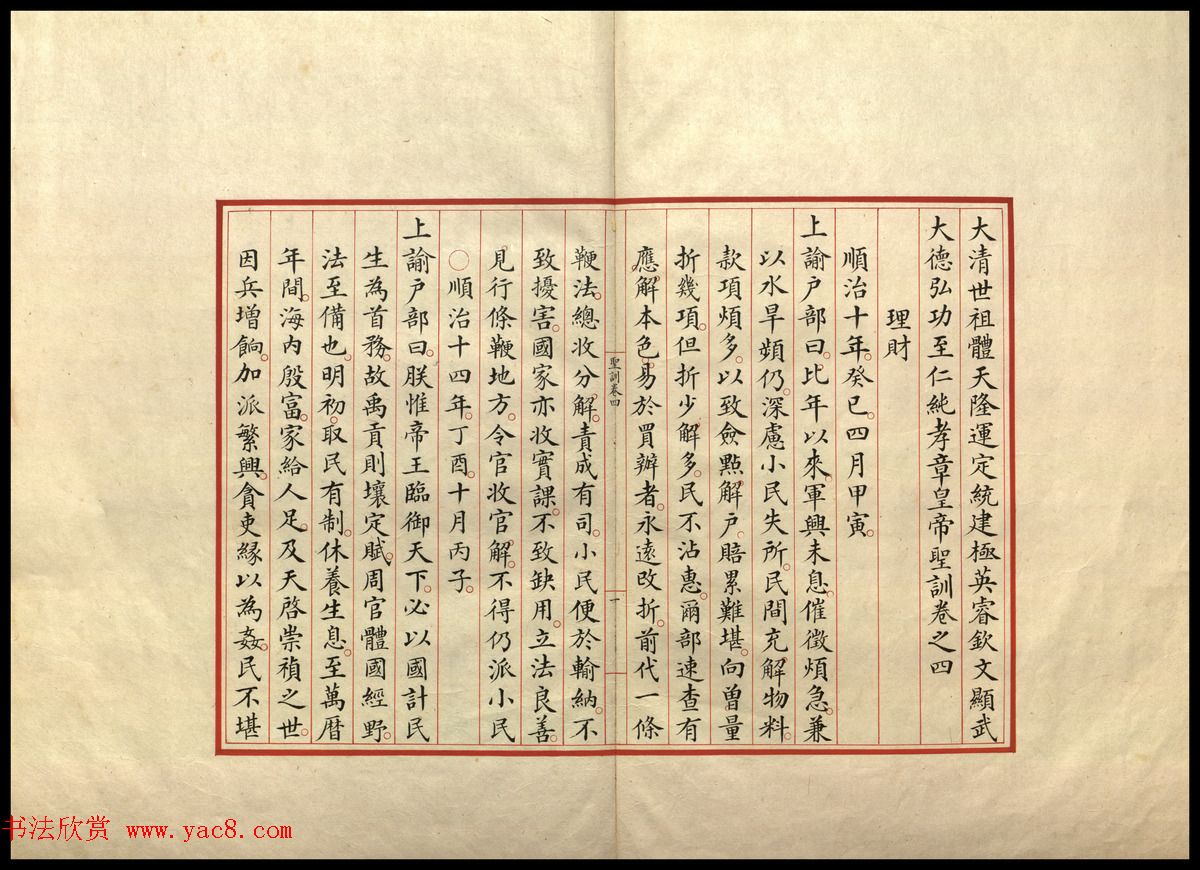 大清世祖體天隆運定統建極英睿欽文顯武
大德弘功至仁純孝章皇帝聖訓卷之四
理財
順治十年。癸巳。四月甲寅。
上諭户部曰。比年以來。軍興未息。催徵煩急。兼
以水旱頻仍。深慮小民失所。民間充解物料。
款項煩多。以致僉點解户。賠累難堪。向曾量
折幾項。但折少解多。民不沾惠。爾部速查有
應解本色。易於買辦者。永遠改折。前代一條
聖訓卷四
一
鞭法。總收分解。責成有司。小民便於輸納。不
致擾害。國家亦收實課。不致缺用。立法良善。
見行條鞭地方。令官收官解。不得仍派小民
○順治十四年。丁酉。十月丙子。
上諭户部曰。朕惟帝王臨御天下。必以國計民
生為首務。故禹貢則壤定賦。周官體國經野。
法至備也。明初。取民有制。休養生息。至萬曆
年間。海內殷富。家給人足。及天啓崇禎之世。
因兵增餉。加派繁興。貪吏緣以為姦。民不堪
书法欣赏 www.yac8.com